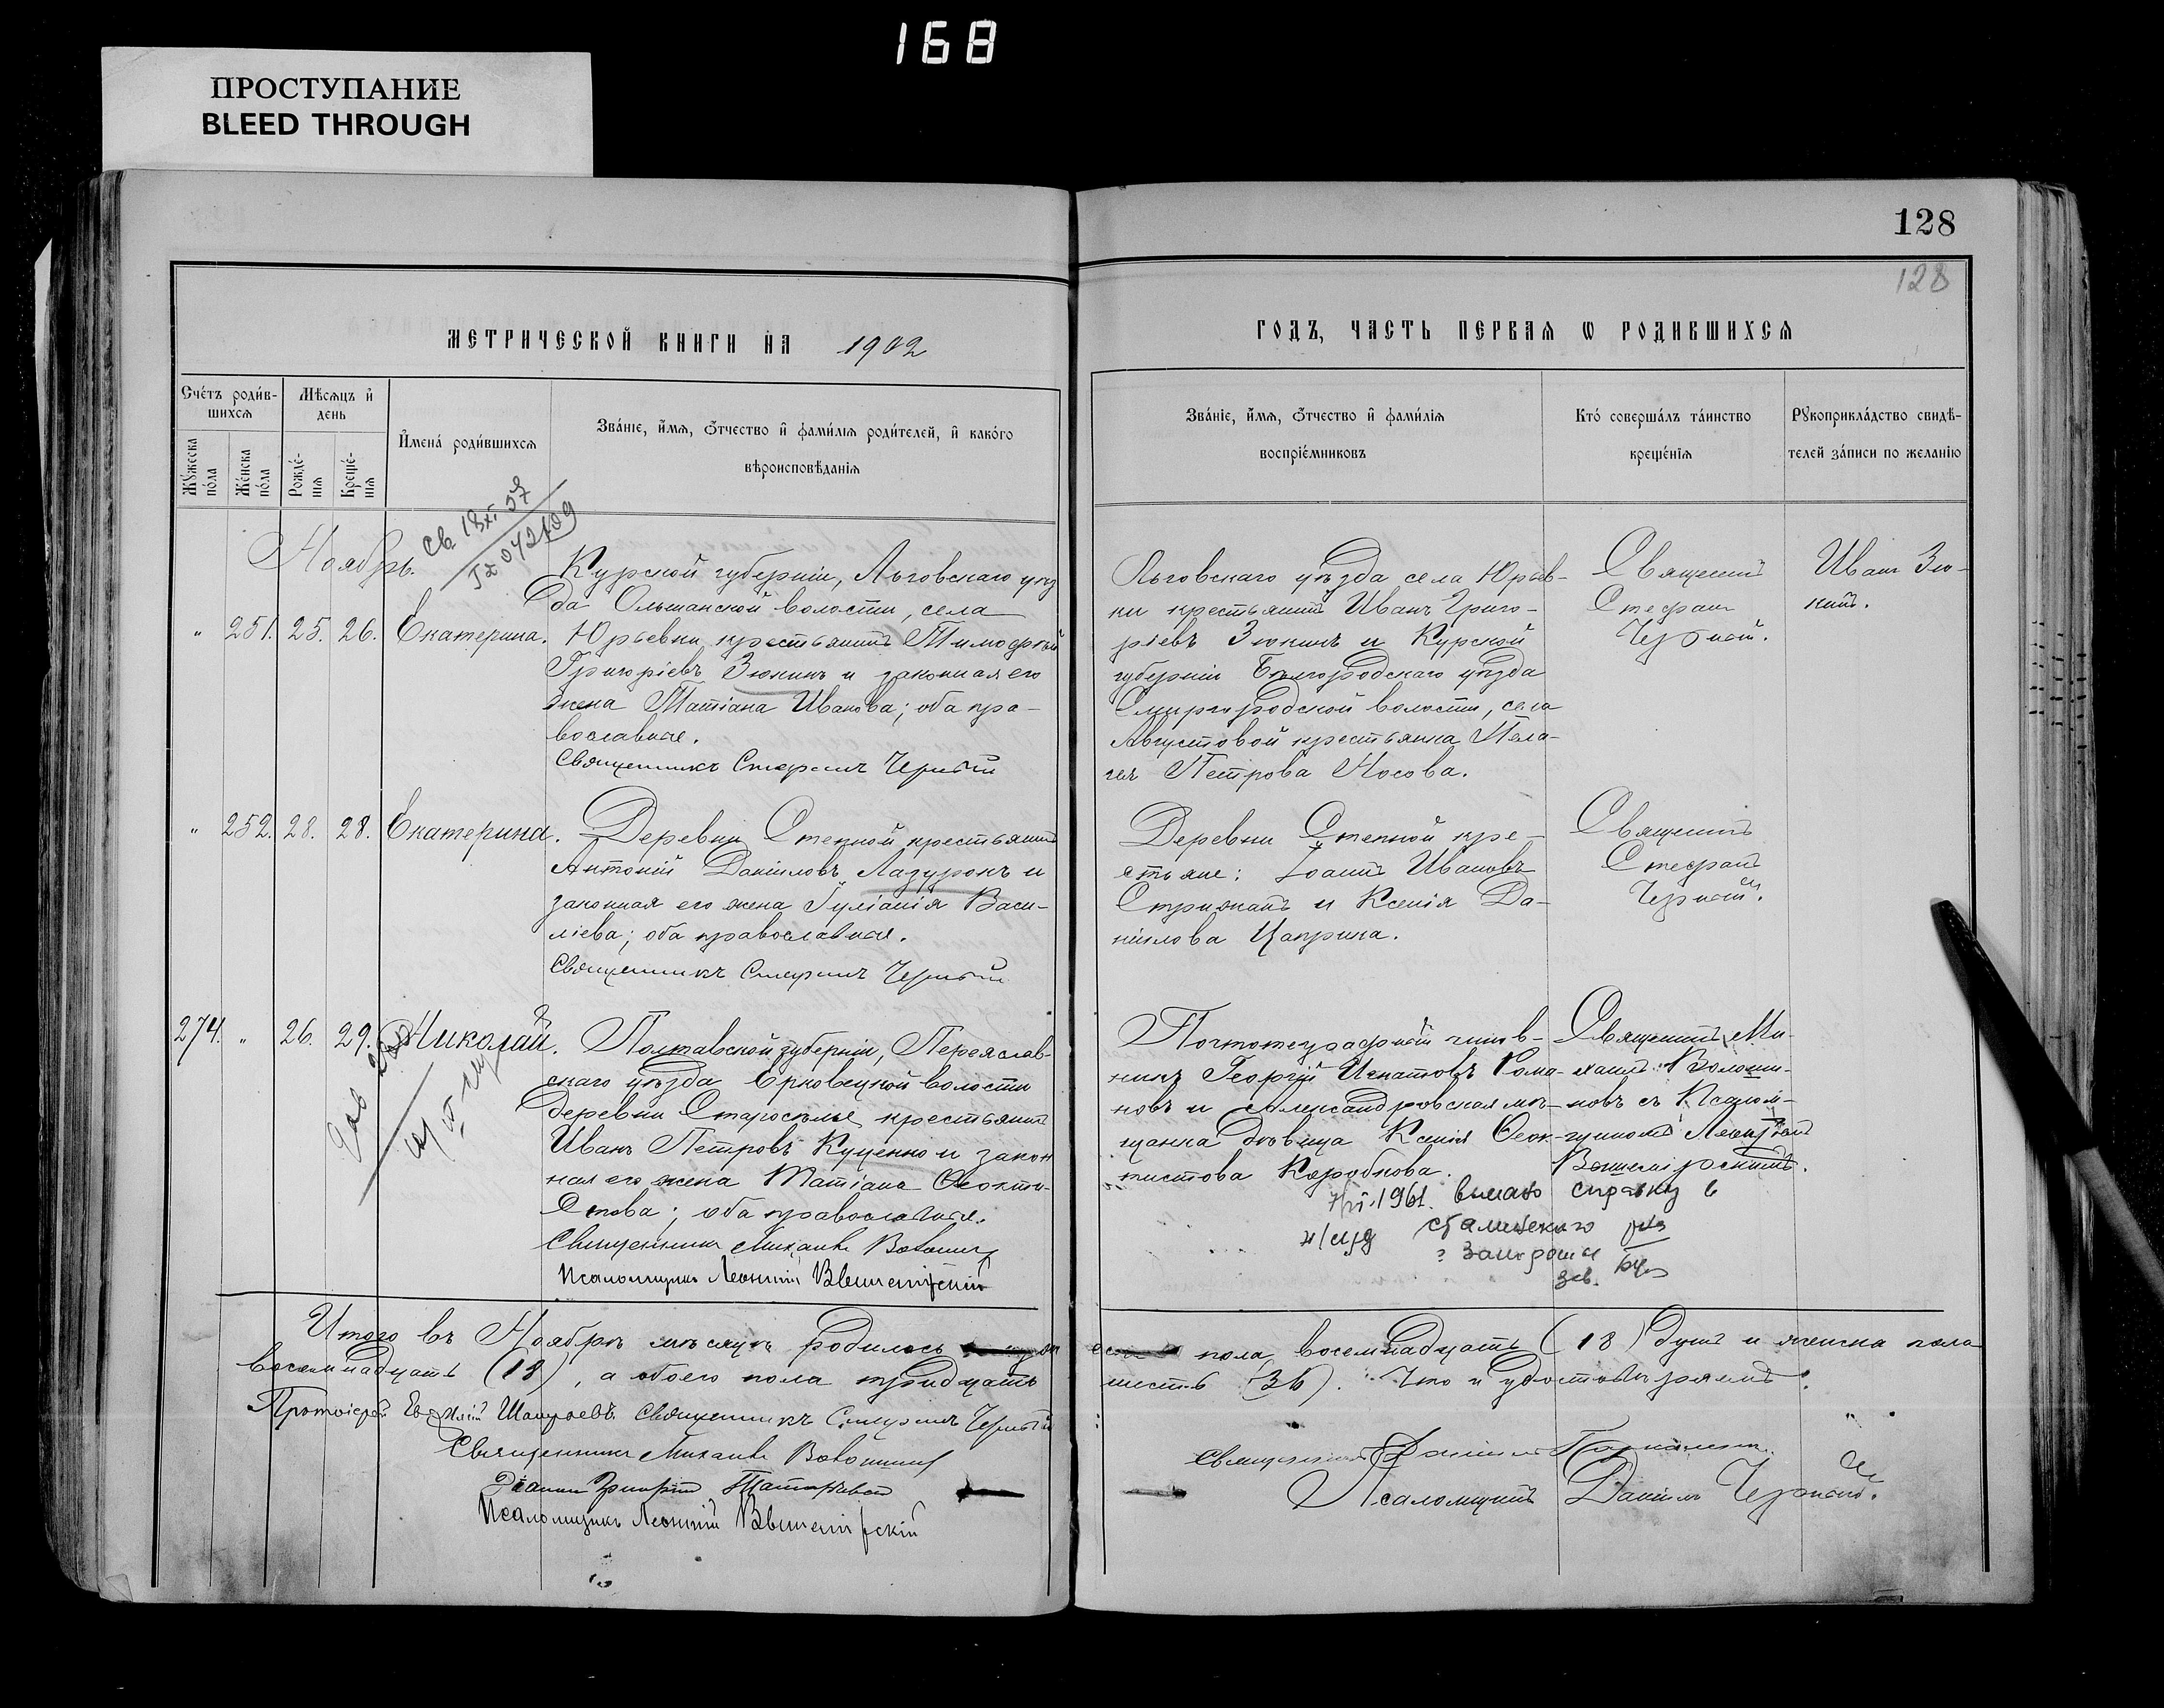 168
ПРОСТУПАНИЕ
BLEED THROUGH
128
128
МЕТРИЧЕСКОЙ КНИГИ НА 1902
ГОДЪ, ЧАСТЬ ПЕРВАѦ Ѡ РОДИВШИХСѦ
Счéтъ роди́в-
шихсѧ
Мѣ́сѧцъ и҆
день
Мꙋ́жеска
по́ла
Же́нска
по́ла
Рожде́-
нїѧ
Креще́-
нїѧ
И҆мена̀ роди́вшихсѧ
Зва́нїе, и҆́мѧ, ѻ҆́тчество и҆ фами́лїѧ роди́телей, и҆ како́го
вѣроисповѣ́данїѧ
Зва́нїе, и҆́мѧ, ѻ҆́тчество и҆ фами́лїѧ
воспрїе́мниковъ
Кто̀ соверша́лъ та́инство
креще́нїѧ
Рꙋкоприкла́дство свидѣ́-
телей за́писи по жела́нїю
Ноябрь.
Св. 18 XI 57
„ 251. 25. 26. Екатерина.
Курской губерніи, Льговскаго уѣз
да Ольшанской волости, села
Юрьевки крестьянинъ Тимофей
Григоріевъ Зюкинъ и законная его
жена Татіана Иванова; оба пра-
вославные.
Священникъ Стефанъ Черный
Льговскаго уѣзда села Юрьев-
ки крестьянинъ Иванъ Григо-
ріевъ Зюкинъ и Курской
губерніи Бѣлгородскаго уѣзда
волости, села
Августовой крестьянка Пела-
гея Петрова Носова.
Священникъ
Стефанъ
Черный.
Иванъ Зю-
кинъ.
„ 252. 28. 28. Екатерина.
Деревни Степной крестьянинъ
Антоній Даніиловъ Лазурокъ и
законная его жена Іуліанія Васи-
ліева; оба православные.
Священникъ Стефанъ Черный
Деревни Степной кре-
стьяне: Іоаннъ Ивановъ
Стрижакъ и Ксенія Да-
ніилова Цаприка.
Священникъ
Стефанъ
Черный.
274. „ 26. 29. Николай.
Полтавской губерніи, Переяслав-
скаго уѣзда Ерковецкой волости
деревни Старосѣлье крестьянинъ
Иванъ Петровъ Куценко и закон
ная его жена Татіана Ѳеокти-
стова; оба православные.
Священникъ Михаилъ Волошинъ
Псаломщикъ Леонтій
Почтотелеграфный чинов-
никъ Георгій Игнатовъ Рома-
новъ и Александровская мѣ-
щанка дѣвица Ксенія Ѳеок-
тистова Коробкова.
Священникъ Ми-
хаилъ Волоши-
новъ съ Псалом-
щикомъ Леонтіемъ
1961. справку в
сталинского
зав.
Итого въ Ноябрѣ мѣсяцѣ родилось
пола восемнадцать (18) душъ и женска пола
восемнадцать (18), а обоего пола тридцать
шесть (36). Что и удостовѣряемъ:
Протоіерей Священникъ Стефанъ Черный
Священникъ Михаилъ Волошинъ
Псаломщикъ Леонтій
Священникъ
Псаломщикъ Даніилъ Черный.